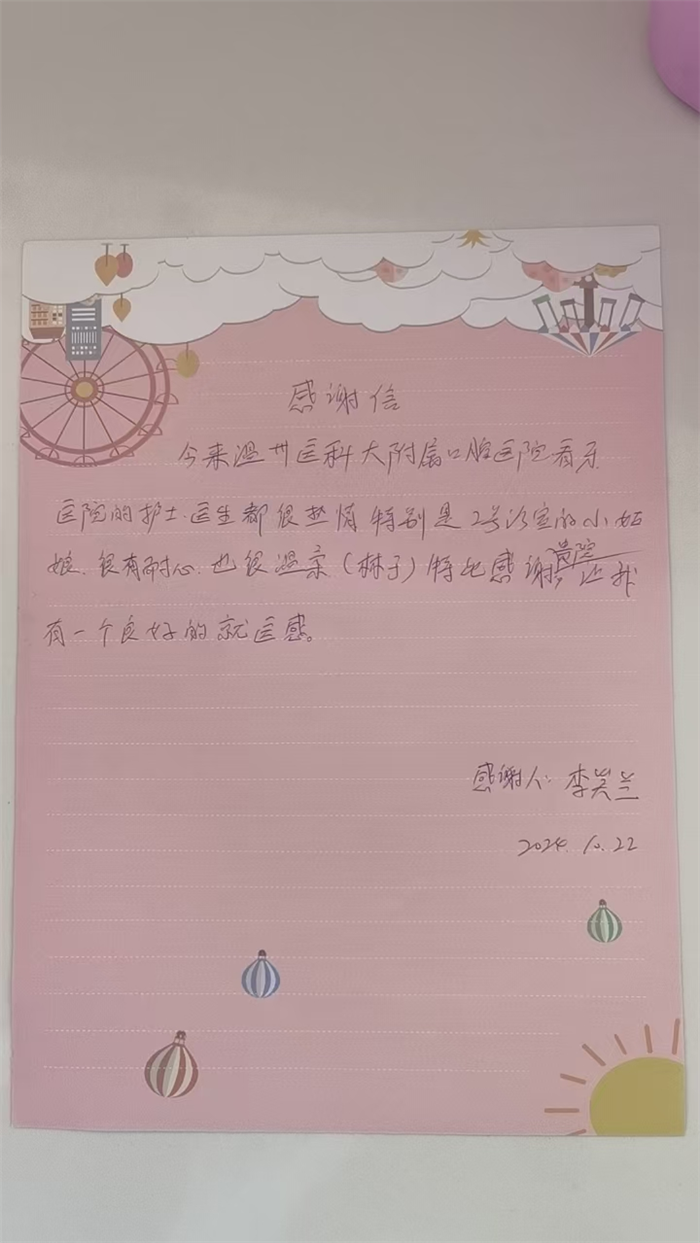 感谢信
今来温州医科大附属口腔医院看牙
医院的护士.医生都很热情特别是2号诊室的小姑
娘.很有耐心.也很温柔(林子)特此感谢贵院 让我
有一个良好的就医感。
感谢人:李笑兰
2024.10.22